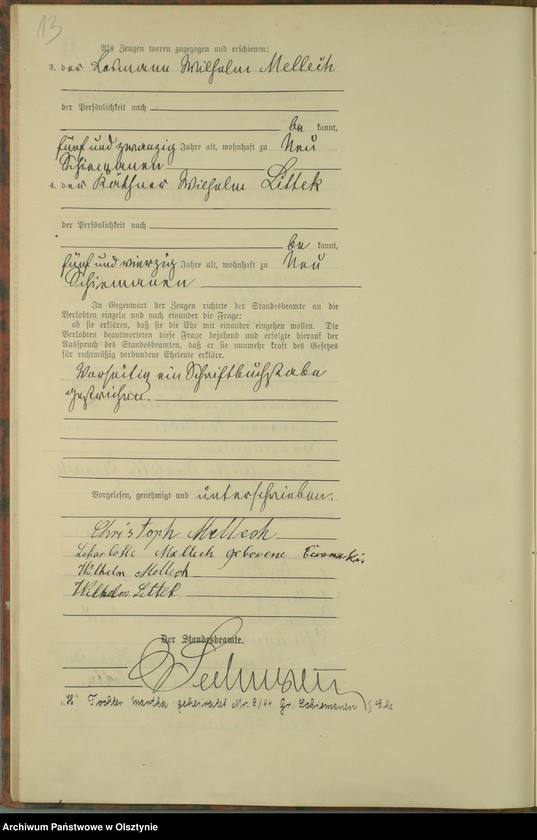 13
Als Zeugen waren zugezogen und erschienen:
3. der Losmann Wilhelm Mellech
der Persönlichkeit nach
be kannt,
fünf und zwanzig Jahre alt, wohnhaft zu Neu
Schiemanen
4. der Käthner Wilhelm Littek
der Persönlichkeit nach
be kannt,
fünf und vierzig Jahre alt, wohnhaft zu Neu
Schiemanen
In Gegenwart der Zeugen richtete der Standesbeamte an die
Verlobten einzeln und nach einander die Frage:
ob sie erklären, daß sie die Ehe mit einander eingehen wollen. Die
Verlobten beantworteten diese Frage bejahend und erfolgte hierauf der
Ausspruch des Standesbeamten, daß er sie nunmehr kraft des Gesetzes
für rechtmäßig verbundene Eheleute erkläre.
Vorseitig ein Schriftbuchstabe
gestrichen.
Vorgelesen, genehmigt und unterschrieben.
Christoph Mellech
Mellech geborene
Wilhelm Mellech
Wilhelm Littek
Der Standesbeamte.
„H“ Tochter Martha geheiratet Nr. 9/44 Gr. Schiemanen
Archiwum Państwowe w Olsztynie